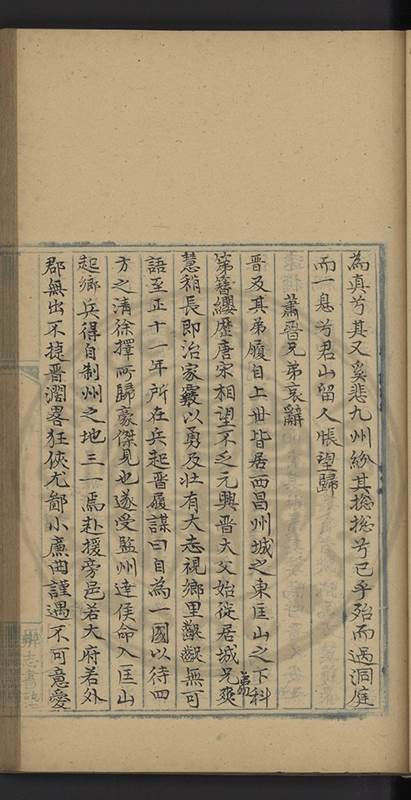 為真兮其又奚悲九州紛其揔揔兮已乎殆而過洞庭
而一息兮君山留人悵望歸
蕭晉兄弟哀辭
晉及其弟履自上世皆居西昌州城之東匡山之下科
第簪纓歷唐宋相望不乏元興晉大父始徙居城兄弟爽
慧稍長即治家嚴以勇及壯有大志視鄉里齪齪無可
語至正十一年所在兵起晉履謀曰自為一國以待四
方之清徐擇所歸豪傑見也遂受監州達侯命入匡山
起鄉兵得自制州之地三一焉赴援旁邑若大府若外
郡無出不捷晉濶畧狂俠尤鄙小廉曲謹遇不可意愛